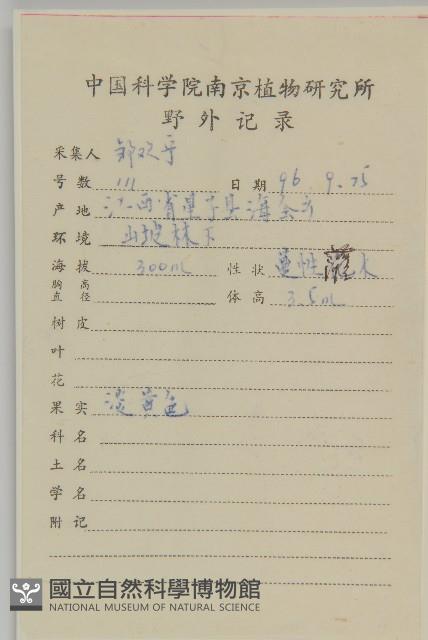 中国科学院南京植物研究所
野外记录
采集人
号数 111 日期 96. 9. 25
产地 江西省星子县海会
环境 山坡林下
海拔 300m 性状 蔓性灌木
胸高直径 体高 3.5m
树皮
叶
花
果实 淡黄色
科名
土名
学名
附记
國立自然科學博物館
NATIONAL MUSEUM OF NATURAL SCIENCE